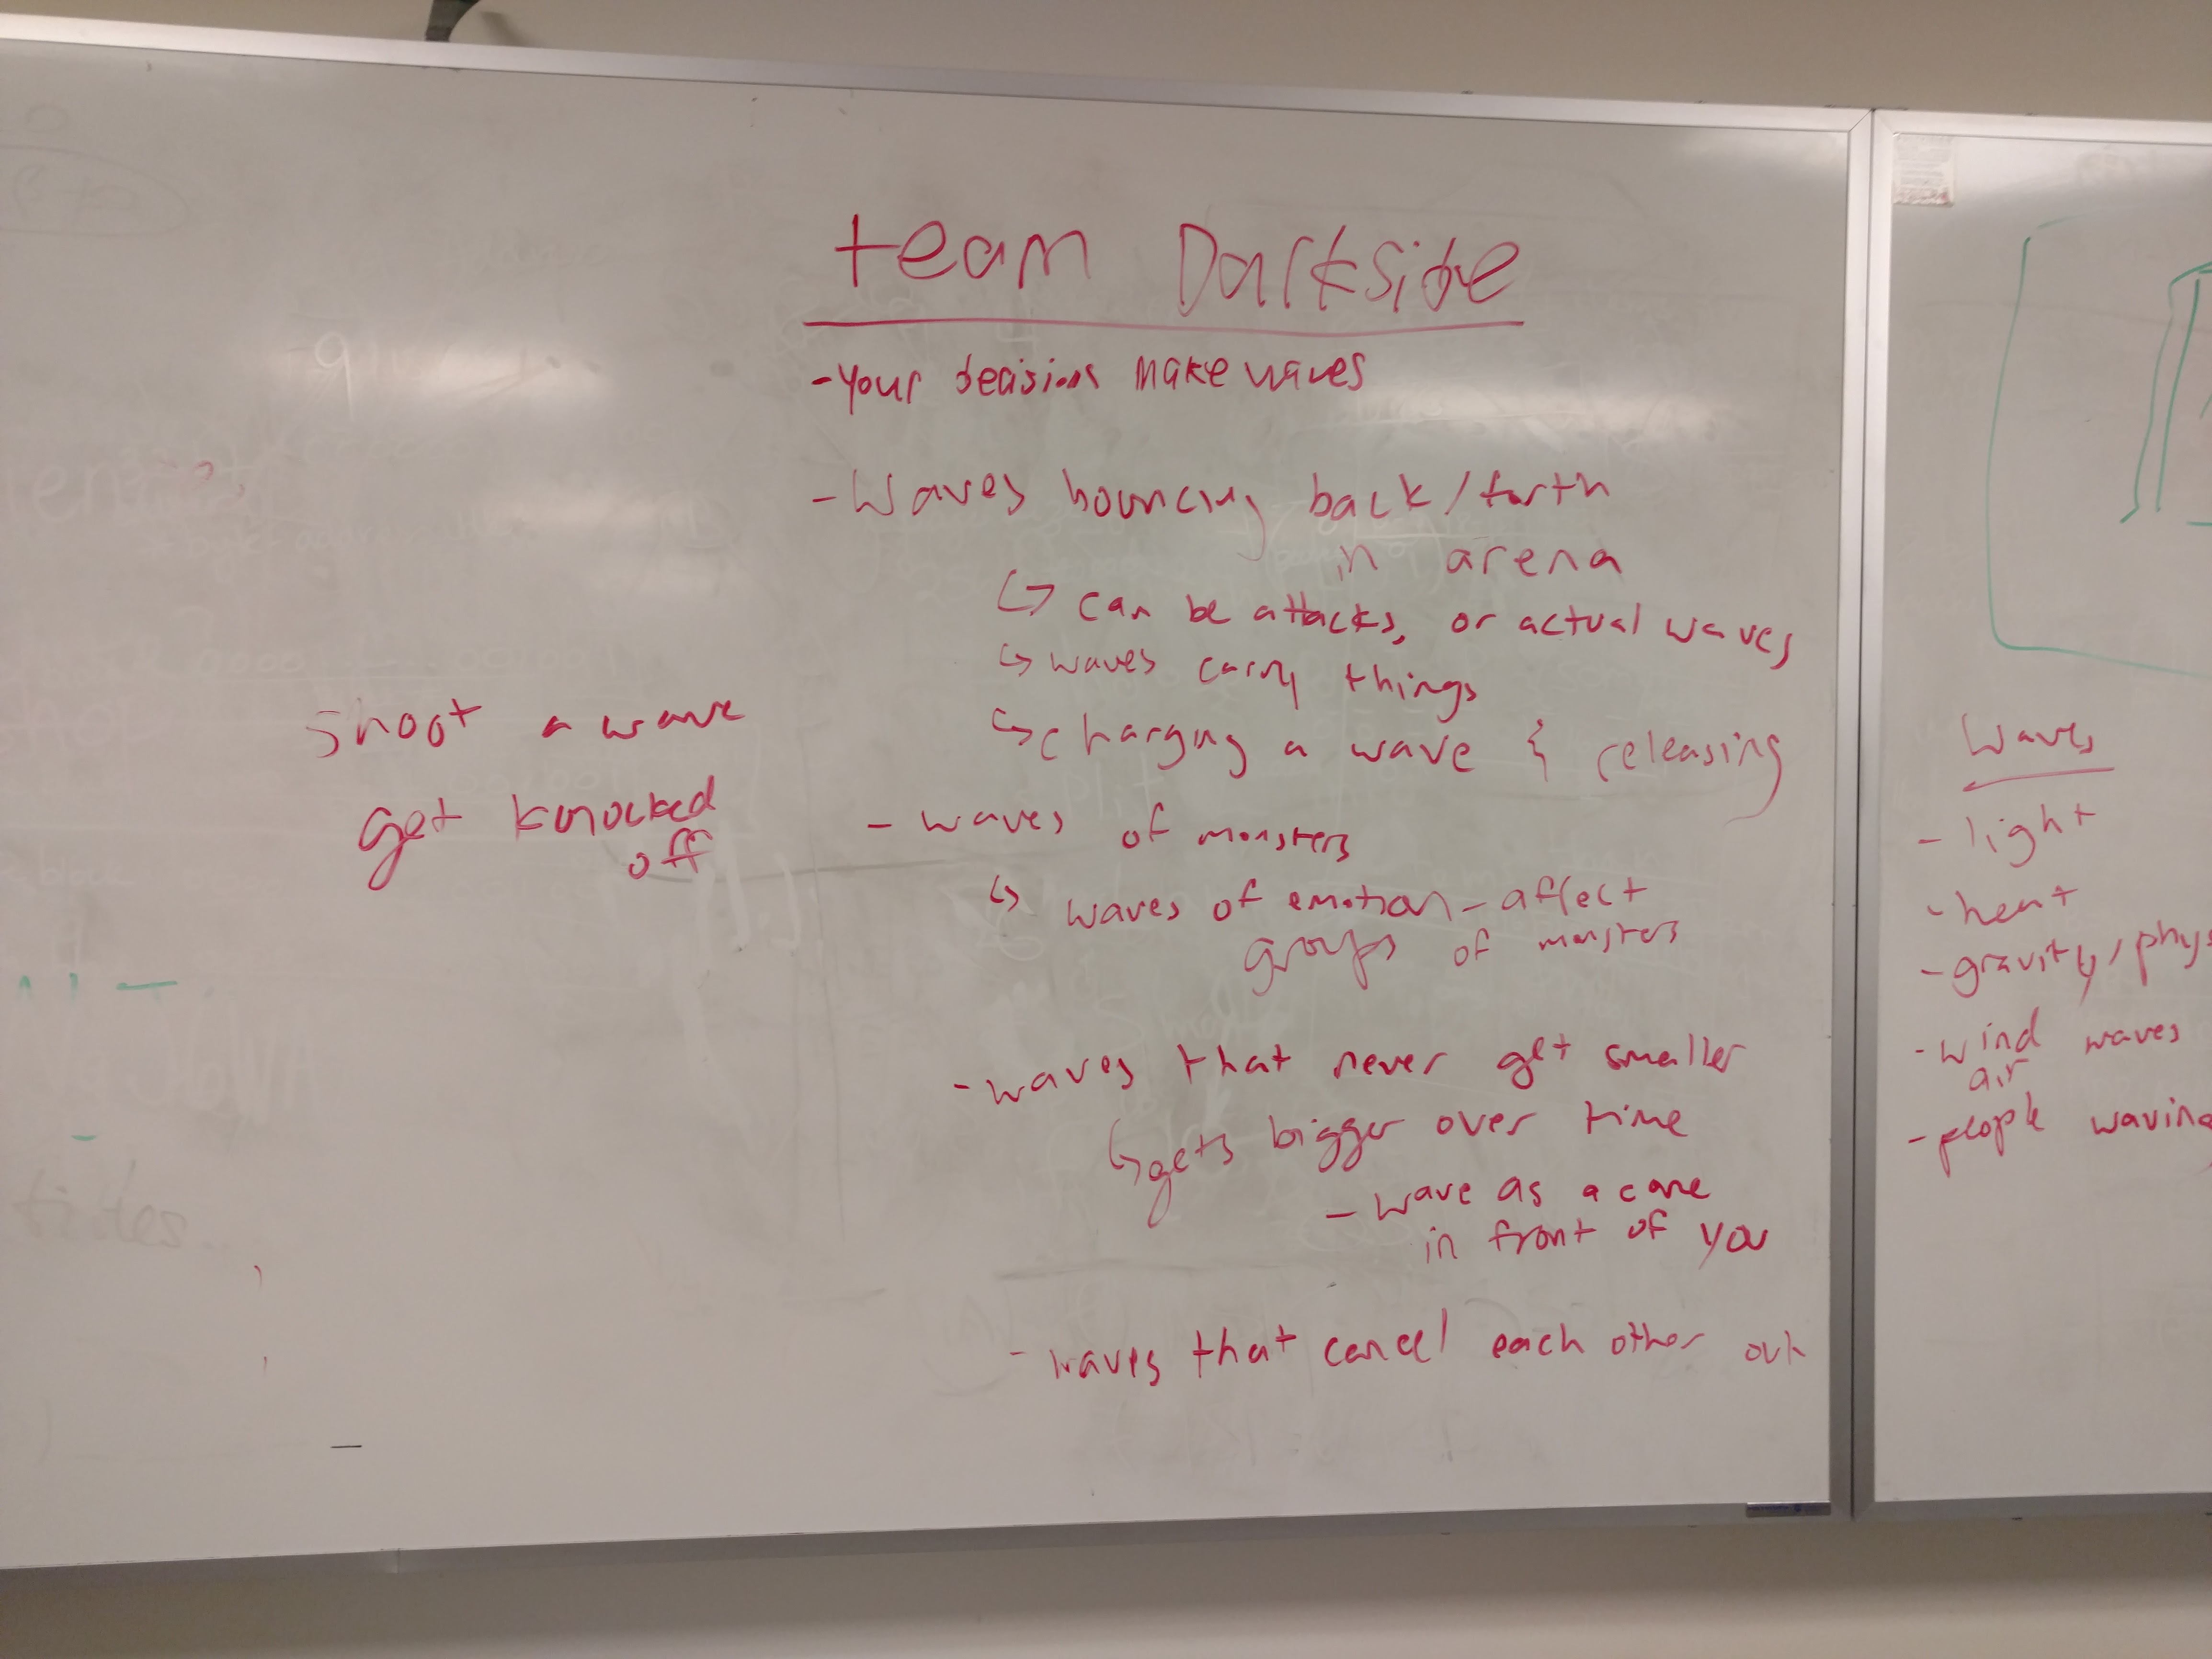 team Darkside
- Your decisions make waves
- Waves bouncing back/forth
in arena
↳ can be attacks, or actual waves
↳ waves carry things
↳ charging a wave & releasing
- waves of monsters
↳ waves of emotion - affect
groups of monsters
- waves that never get smaller
↳ gets bigger over time
- wave as a cone
in front of you
- waves that cancel each other out
shoot a wave
get knocked
off
Waves
- light
- heat
- gravity/phys
- wind waves
air
- people waving